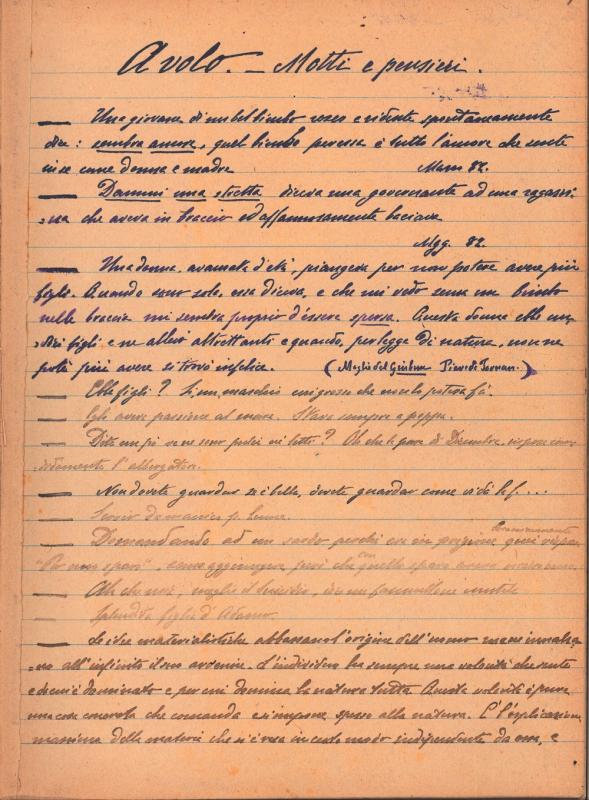 Avolo. — Motti e pensieri.
— Una giovane di un bel bimbo roseo e ridente spontaneamente
dice: sembra amore, quel bimbo perocessa è tutto l'amore che sente
in se come donna e madre Marzo 82.
— Dammi una stretta diceva una governante ad una ragazzi-
=na che aveva in braccio ed affannosamente baciava
Mgg. 82.
— Una donna, avanzata d'età, piangeva per non potere avere più
figli. Quando sono sola, essa diceva, e che mi vedo senza un bimbo
nelle braccia mi sembra proprio d'essere spersa. Questa donna ebbe un-
=dici figli e ne allevò altrettanti e quando, per legge di natura, non ne
potè più avere si trovò infelice. (Moglie del Pieve di )
— Ebbe figli? Si un maschio così grosso che non lo poteva fà.
— Egli aveva passione al mare. Stava sempre a poppa.
— Dite un po' se ne sono pulci nei letti? Oh che ti pare di Dicembre, rispose
l'albergatore.
— Non dovete guardar se è bella, dovete guardar come vi dà le f...
— Servir da manico p.
— Domandando ad un sardo perchè era in prigione quei rispose
"Per uno sparo", senza aggiungere però che con quello sparo aveva
— Oh che noi, meglio il suicidio, inutile
— Splendida figlia d'Adamo.
— Le idee materialistiche abbassano l'origine dell'uomo ma ne innalza-
=no all'infinito il suo avvenire. L'individuo ha sempre una volontà che sente
e da cui è dominato e per cui domina la natura tutta. Questa volontà è pure
una cosa che comanda e s'impone spesso alla natura. È l'esplicazione
massima della materia che si è resa in certo modo indipendente da essa, e